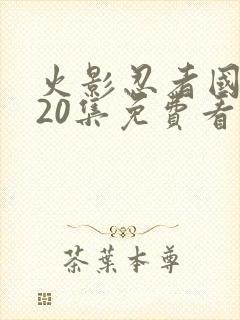 火影忍者國
20集免費看
茶葉本尊